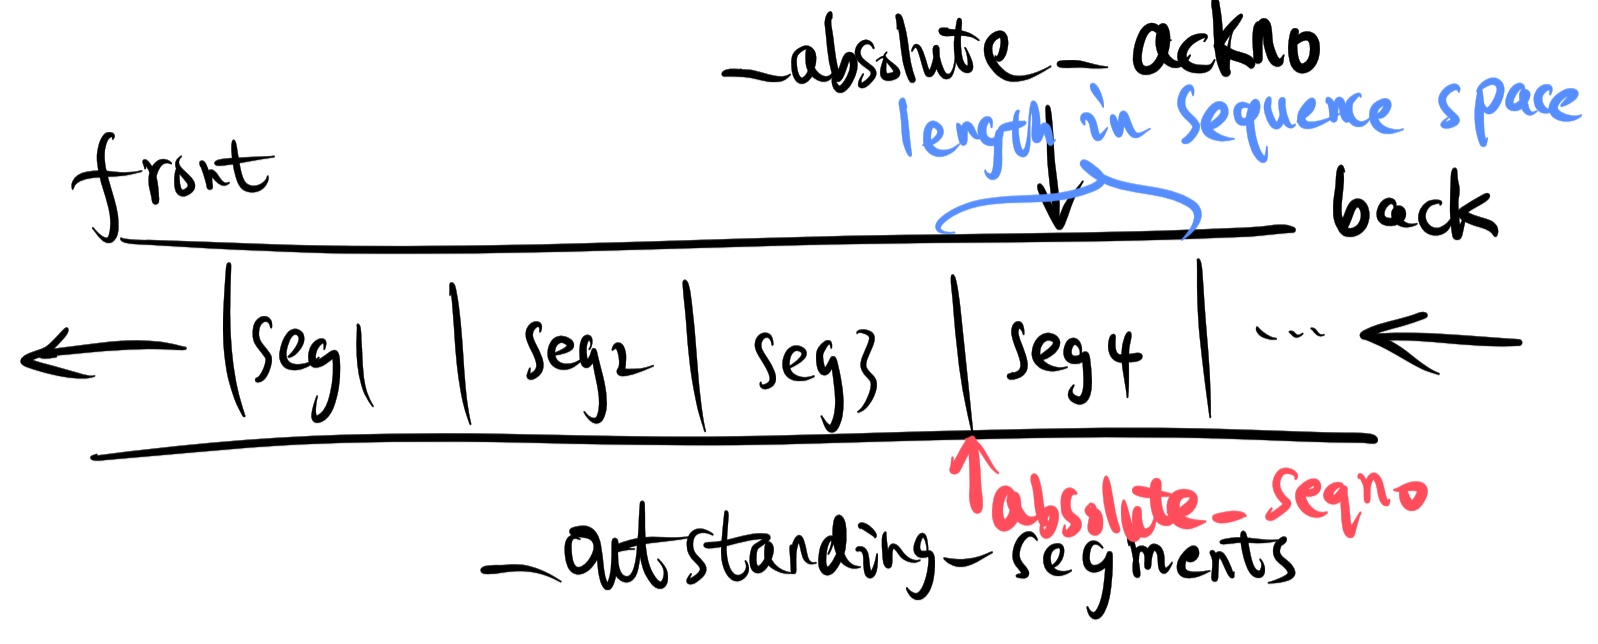 _absolute_ackno
length in sequence space
front
back
seg1 seg2 seg3 seg4 ...
absolute_seqno
_outstanding_segments